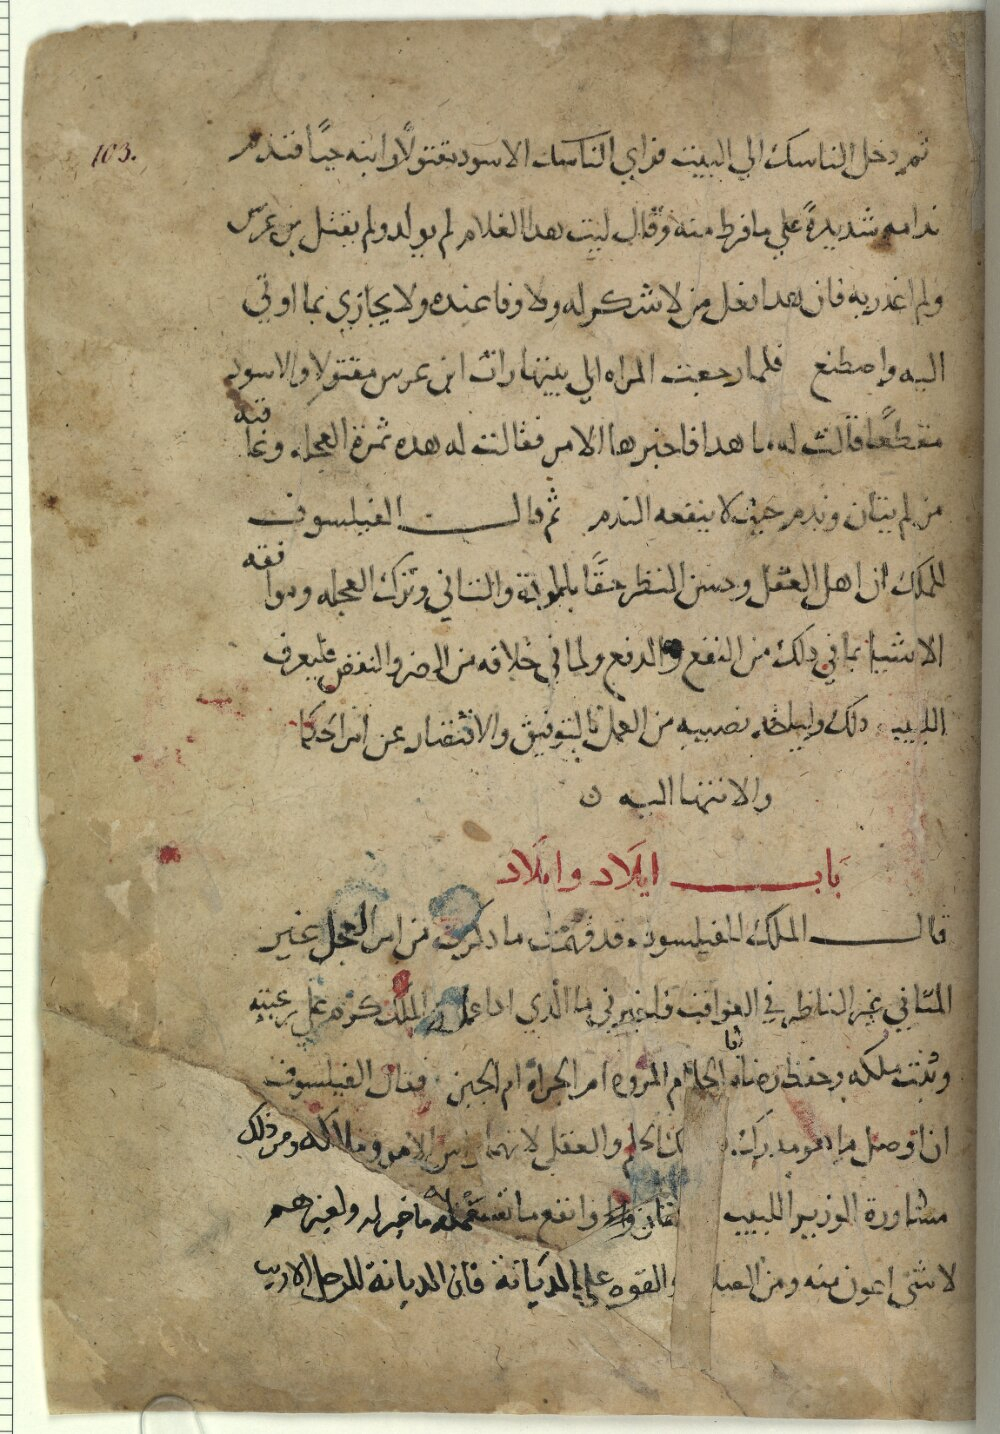 103.
ثم دخل الناسك الي البيت فراي الناسك الاسود مقتولًا وابنه حيًا فندم
ندامه شديدةً علي ما فرط منه وقال ليت هدا الغلام لم يولد ولم يقتل بن عرس
ولم اغدر به فان هدا فعل من لا شكر له ولا وفا عنده ولا يجازي بما اوتي
اليه واصطنع فلما رجعت المراه الي بيتها رات ابن عرس مقتولا والاسود
مقطعًا قالت له ما هدا فاخبرها الامر فقالت له هده ثمرة العجله وعاقبه
من لم يتان وندم حيث لا ينفعه الندم ثم قال الفيلسوف
للملك ان اهل العقل وحسن النظر حقًا بالمونة والتاني وترك العجله وموافقه
الاشيا بما في دلك من النفع والدفع ولما في خلافه من الضر والنقص فليعرف
اللبيب دلك ولياخد نصيبه من العمل بالتوفيق والاقتصار عن امر الحكما
والانتها اليه ن
بَاب ايلَاد وابلَاد
قال الملك للفيلسوف قد فهمت ما دكرت من امر العجل غير
المتاني غير الناظر في العواقب فاخبرني ما الذي ادا عمل به الملك كرم علي رعيته
وثبت ملكه وحفظ رضاه الحلم ام المروه ام الجراة ام الجبن فقال الفيلسوف
ان افضل ما هو مدرك الحلم والعقل لانهما راس الامر وملاكه ومن ذلك
مشاورة الوزير اللبيب وانفع ما له ما خير له ولغيرهم
لا شي اعون منه ومن والقوه علي الديانة فان الديانة للرجل الاديب